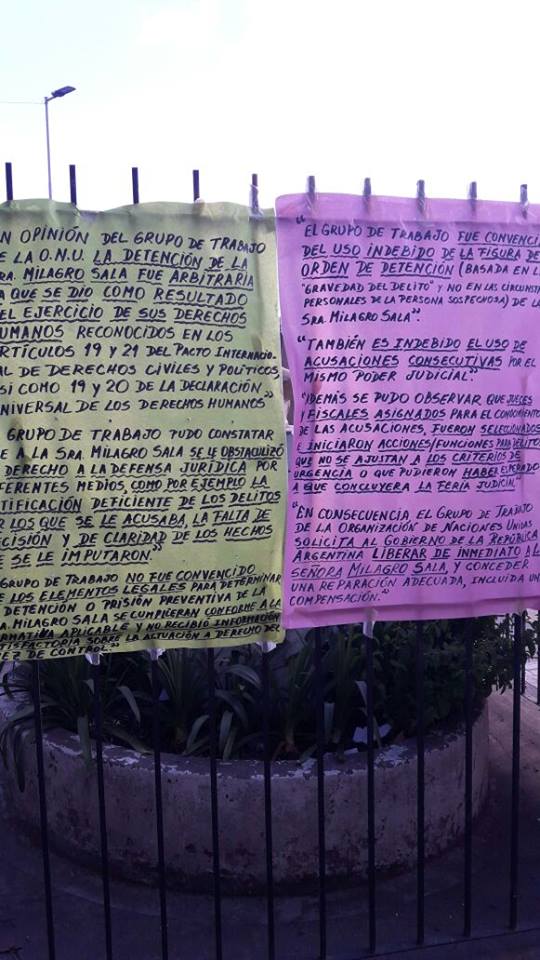 N OPINIÓN DEL GRUPO DE TRABAJO
E LA O.N.U. LA DETENCIÓN DE LA
RA. MILAGRO SALA FUE ARBITRARIA
A QUE SE DIO COMO RESULTADO
EL EJERCICIO DE SUS DERECHOS
UMANOS RECONOCIDOS EN LOS
RTÍCULOS 19 Y 21 DEL PACTO INTERNACIO-
AL DE DERECHOS CIVILES Y POLÍTICOS,
SI COMO 19 Y 20 DE LA DECLARACIÓN
NIVERSAL DE LOS DERECHOS HUMANOS"
GRUPO DE TRABAJO PUDO CONSTATAR
E A LA SRA. MILAGRO SALA SE LE OBSTACULIZÓ
DERECHO A LA DEFENSA JURÍDICA POR
FERENTES MEDIOS, COMO POR EJEMPLO LA
TIFICACIÓN DEFICIENTE DE LOS DELITOS
R LOS QUE SE LE ACUSABA, LA FALTA DE
CISIÓN Y DE CLARIDAD DE LOS HECHOS
E SE LE IMPUTARON."
GRUPO DE TRABAJO NO FUE CONVENCIDO
E LOS ELEMENTOS LEGALES PARA DETERMINAR
DETENCIÓN O PRISIÓN PREVENTIVA DE LA
A. MILAGRO SALA SE CUMPLIERAN CONFORME A LA
RMATIVA APLICABLE Y NO RECIBIÓ INFORMACIÓN
TISFACTORIA SOBRE LA ACTUACIÓN A DERECHO DEL
EZ DE CONTROL."
"EL GRUPO DE TRABAJO FUE CONVENCI
DEL USO INDEBIDO DE LA FIGURA DE
ORDEN DE DETENCIÓN (BASADA EN L
"GRAVEDAD DEL DELITO" Y NO EN LAS CIRCUNST
PERSONALES DE LA PERSONA SOSPECHOSA) DE LA
SRA. MILAGRO SALA".
"TAMBIÉN ES INDEBIDO EL USO DE
ACUSACIONES CONSECUTIVAS POR EL
MISMO PODER JUDICIAL."
"IDEMÁS SE PUDO OBSERVAR QUE JUECES
FISCALES ASIGNADOS PARA EL CONOCIMIENTO
DE LAS ACUSACIONES, FUERON SELECCIONADOS
E INICIARON ACCIONES/FUNCIONES PARA DELITOS
QUE NO SE AJUSTAN A LOS CRITERIOS DE
URGENCIA O QUE PUDIERON HABER ESPERADO
A QUE CONCLUYERA LA FERIA JUDICIAL"
"EN CONSECUENCIA, EL GRUPO DE TRABAJO
DE LA ORGANIZACIÓN DE NACIONES UNIDAS
SOLICITA AL GOBIERNO DE LA REPÚBLICA
ARGENTINA LIBERAR DE INMEDIATO A L
SEÑORA MILAGRO SALA, Y CONCEDER
UNA REPARACIÓN ADECUADA, INCLUIDA UN
COMPENSACIÓN."